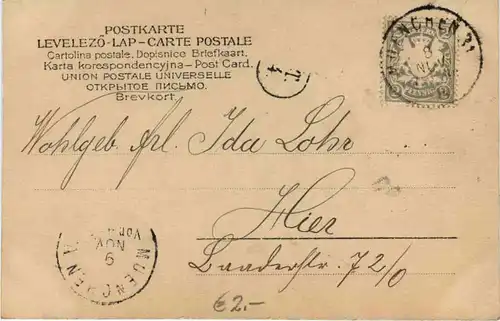 POSTKARTE
LEVELEZŐ-LAP-CARTE POSTALE
Cartolina postale. Dopisnice Briefkaart.
Karta korespondencyjna-Post Card.
UNION POSTALE UNIVERSELLE
ОТКРЫТОЕ ПИСЬМО.
Brevkort.
MUENCHEN 31
8
NOV
2 PFENNIG 2
Wohlgeb. Frl. Ida Lohr
Hier
Baaderstr. 72/0
MUENCHEN
9
NOV
Vor
€2.-